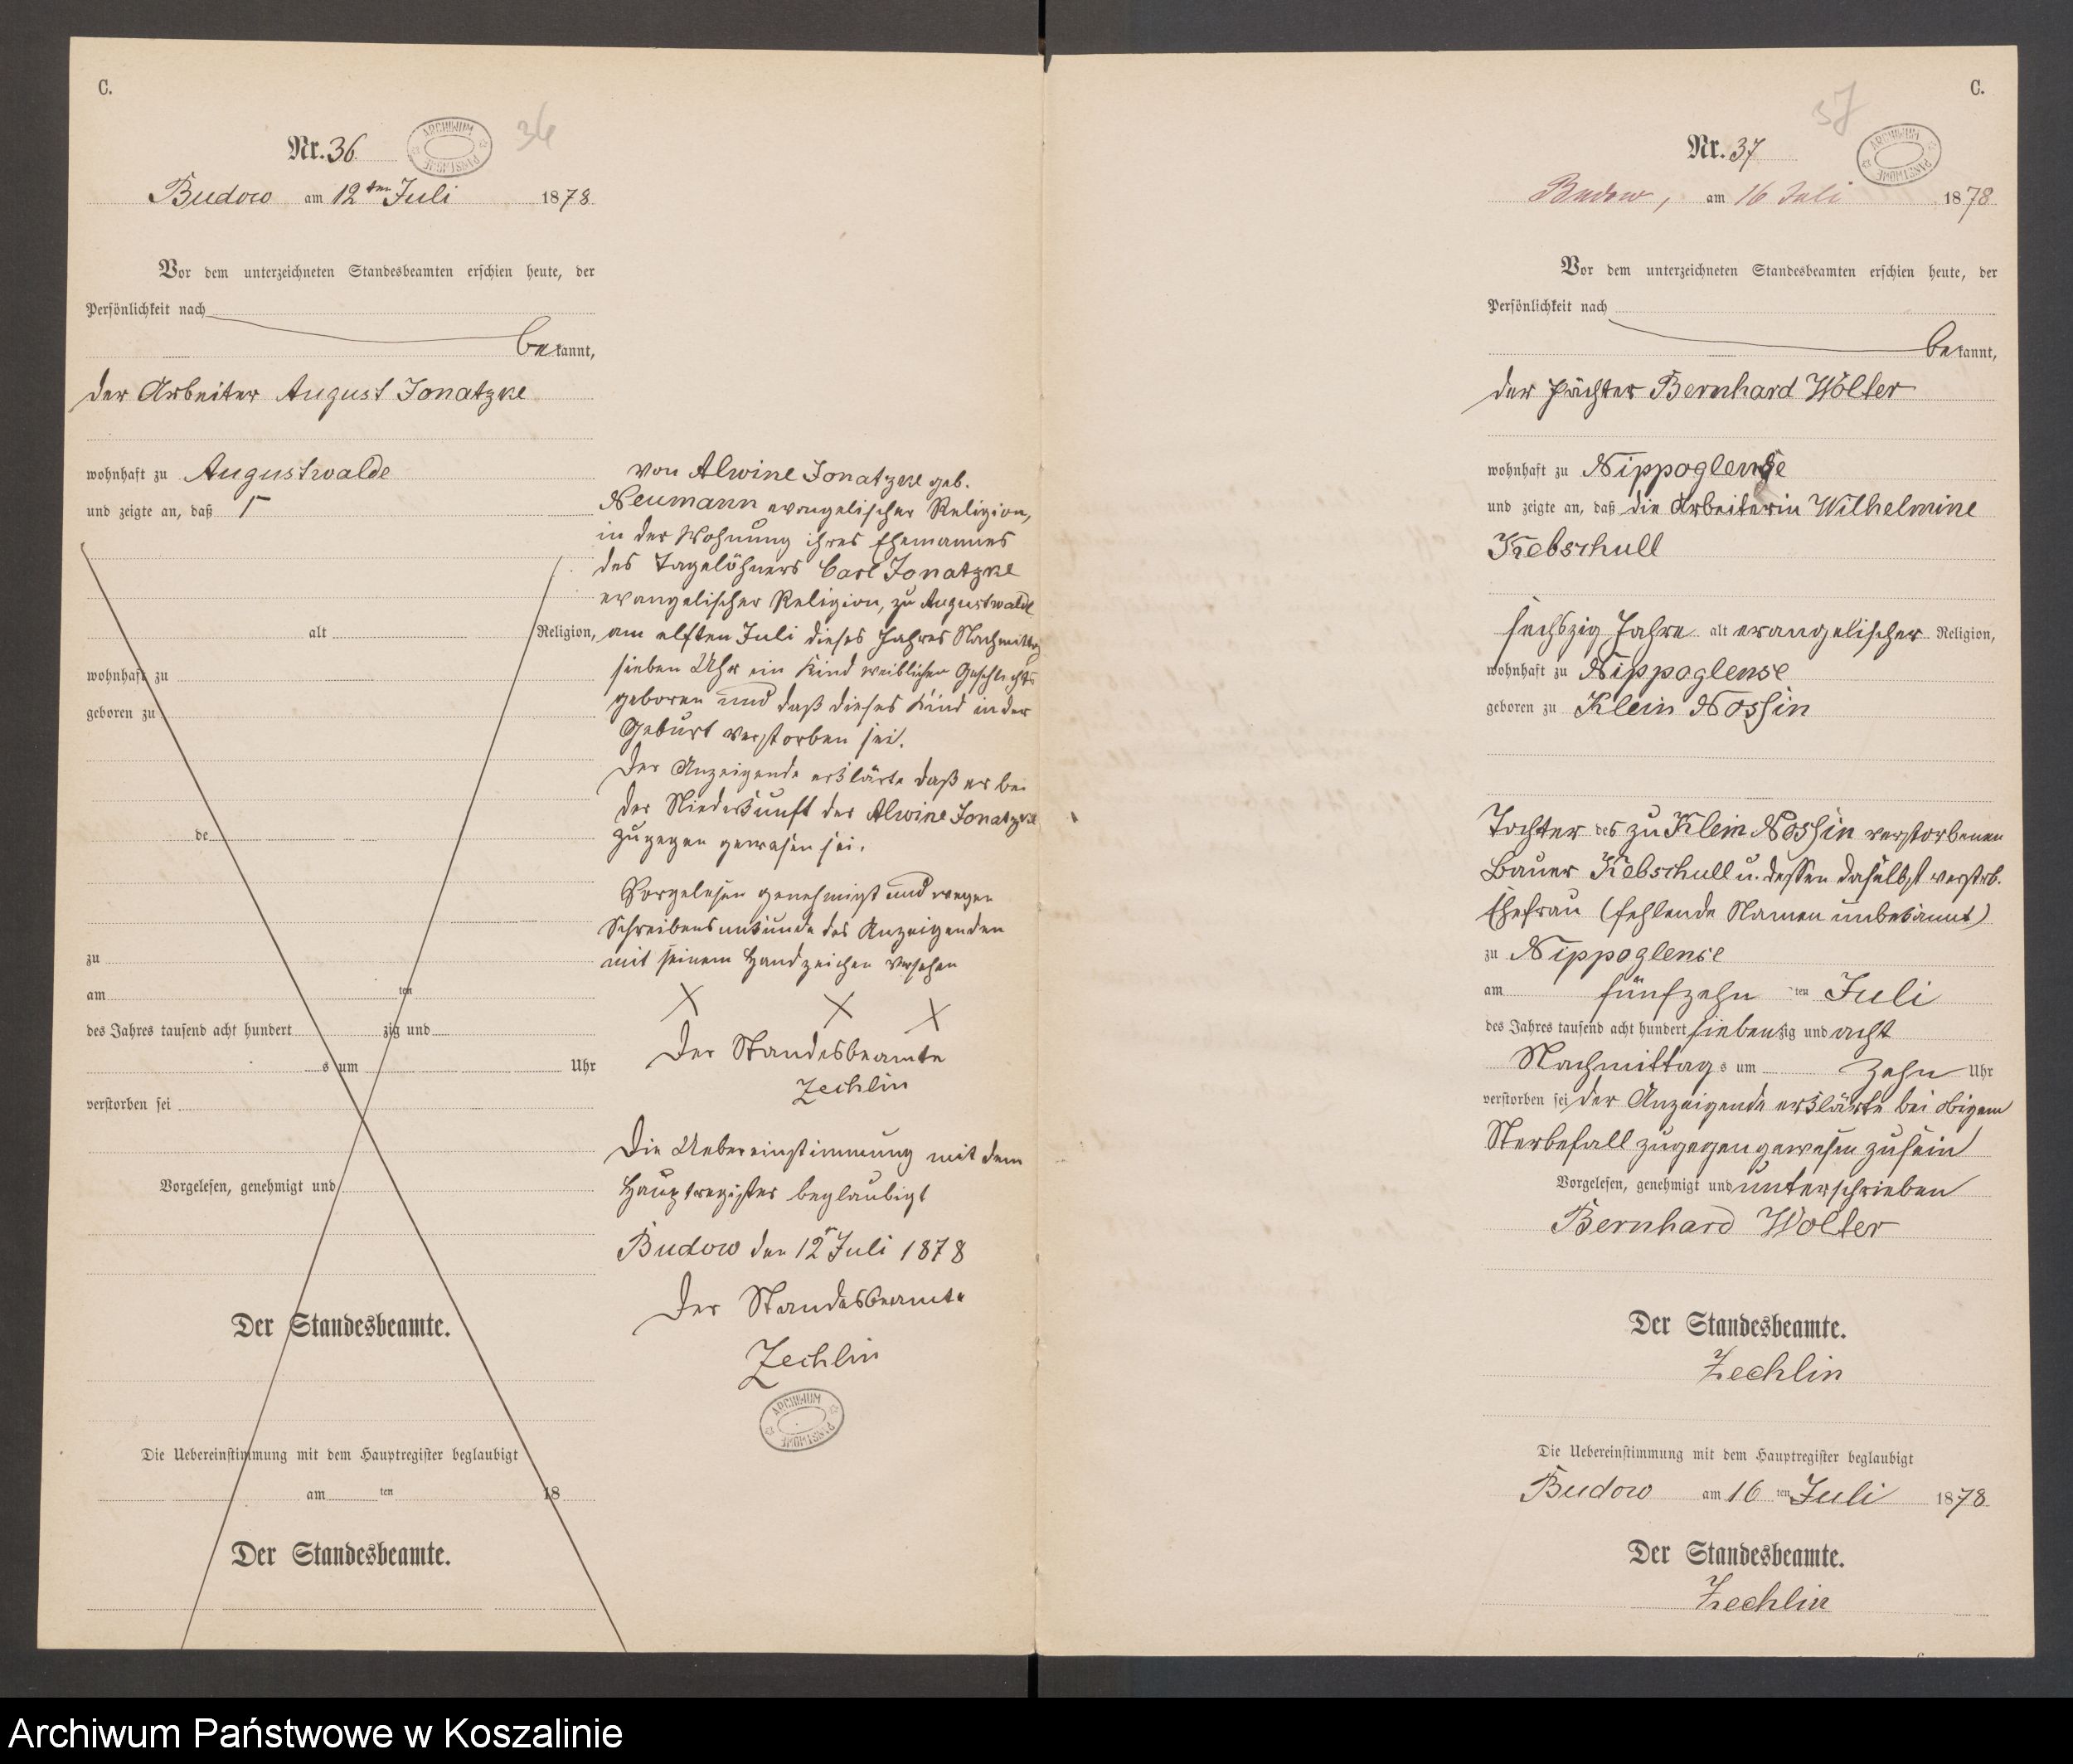 C.
Nr. 36
36
ARCHIWUM PAŃSTWOWE
Budow am 12ten Juli 1878
Vor dem unterzeichneten Standesbeamten erschien heute, der
Persönlichkeit nach
bekannt,
der Arbeiter August Jonatzke
wohnhaft zu Augustwalde
und zeigte an, daß
alt Religion,
wohnhaft zu
geboren zu
de
zu
am ten
des Jahres tausend acht hundert zig und
s um Uhr
verstorben sei
Vorgelesen, genehmigt und
Der Standesbeamte.
Die Uebereinstimmung mit dem Hauptregister beglaubigt
am ten 18
Der Standesbeamte.
von Alwine Jonatzke geb.
Neumann evangelischer Religion,
in der Wohnung ihres Ehemannes
des Tagelöhners Carl Jonatzke
evangelischer Religion, zu Augustwalde
am elften Juli dieses Jahres Nachmittag
sieben Uhr ein Kind weiblichen Geschlechts
geboren und daß dieses Kind in der
Geburt verstorben sei.
Der Anzeigende erklärte daß er bei
der Niederkunft der Alwine Jonatzke
zugegen gewesen sei.
Vorgelesen genehmigt und wegen
Schreibensunkunde des Anzeigenden
mit seinem Handzeichen versehen
X X X
Der Standesbeamte
Zechlin
Die Uebereinstimmung mit dem
Hauptregister beglaubigt
Budow den 12 Juli 1878
Der Standesbeamte
Zechlin
ARCHIWUM PAŃSTWOWE
C.
37
Nr. 37
ARCHIWUM PAŃSTWOWE
Budow, am 16 Juli 1878
Vor dem unterzeichneten Standesbeamten erschien heute, der
Persönlichkeit nach
bekannt,
der Pächter Bernhard Wolter
wohnhaft zu Nippoglense
und zeigte an, daß die Arbeiterin Wilhelmine
Kebschull
sechszig Jahre alt evangelischer Religion,
wohnhaft zu Nippoglense
geboren zu Klein Nossin
Tochter des zu Klein Nossin verstorbenen
Bauer Kebschull u. dessen daselbst verstrb.
Ehefrau (fehlende Namen unbekannt)
zu Nippoglense
am fünfzehn ten Juli
des Jahres tausend acht hundert siebenzig und acht
Nachmittags um zehn Uhr
verstorben sei der Anzeigende erklärte bei obigem
Sterbefall zugegen gewesen zu sein
Vorgelesen, genehmigt und unterschrieben
Bernhard Wolter
Der Standesbeamte.
Zechlin
Die Uebereinstimmung mit dem Hauptregister beglaubigt
Budow am 16 ten Juli 1878
Der Standesbeamte.
Zechlin
Archiwum Państwowe w Koszalinie